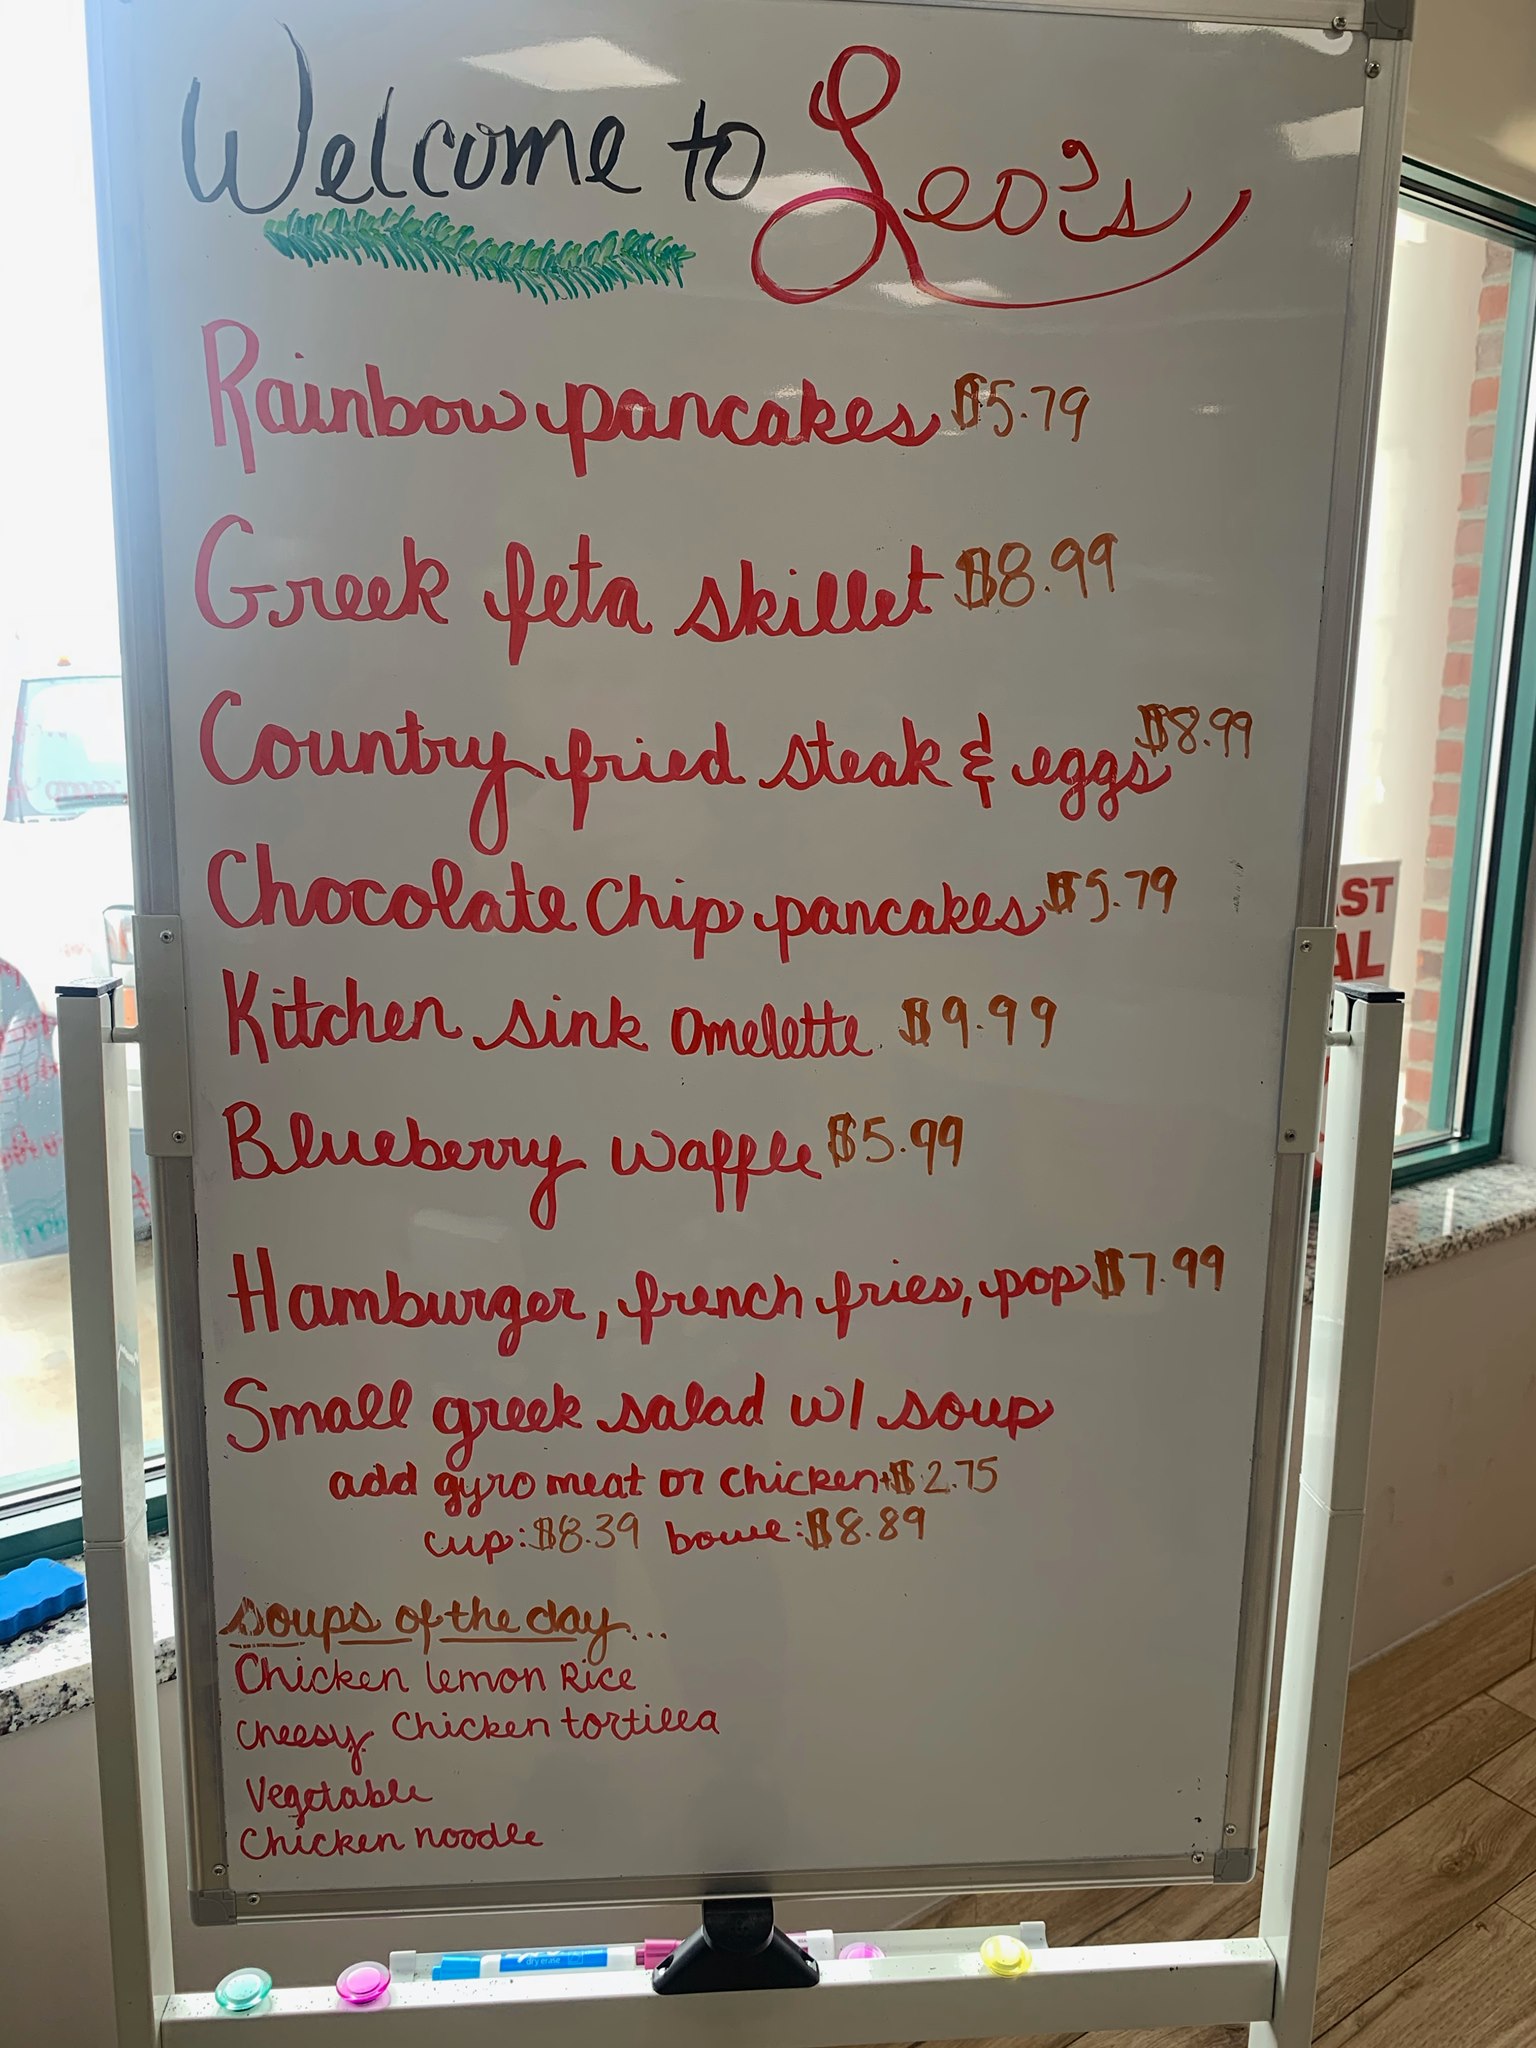 Welcome to Leo's
Rainbow pancakes $5.79
Greek feta skillet $8.99
Country fried steak & eggs $8.99
Chocolate Chip pancakes $5.79
Kitchen sink omelette $9.99
Blueberry waffle $5.99
Hamburger, french fries, pop $7.99
Small greek salad w/ soup
add gyro meat or chicken +$2.75
cup: $8.39 bowl: $8.89
soups of the day...
Chicken lemon Rice
Cheesy Chicken tortilla
Vegetable
Chicken noodle
AST
AL
dry erase